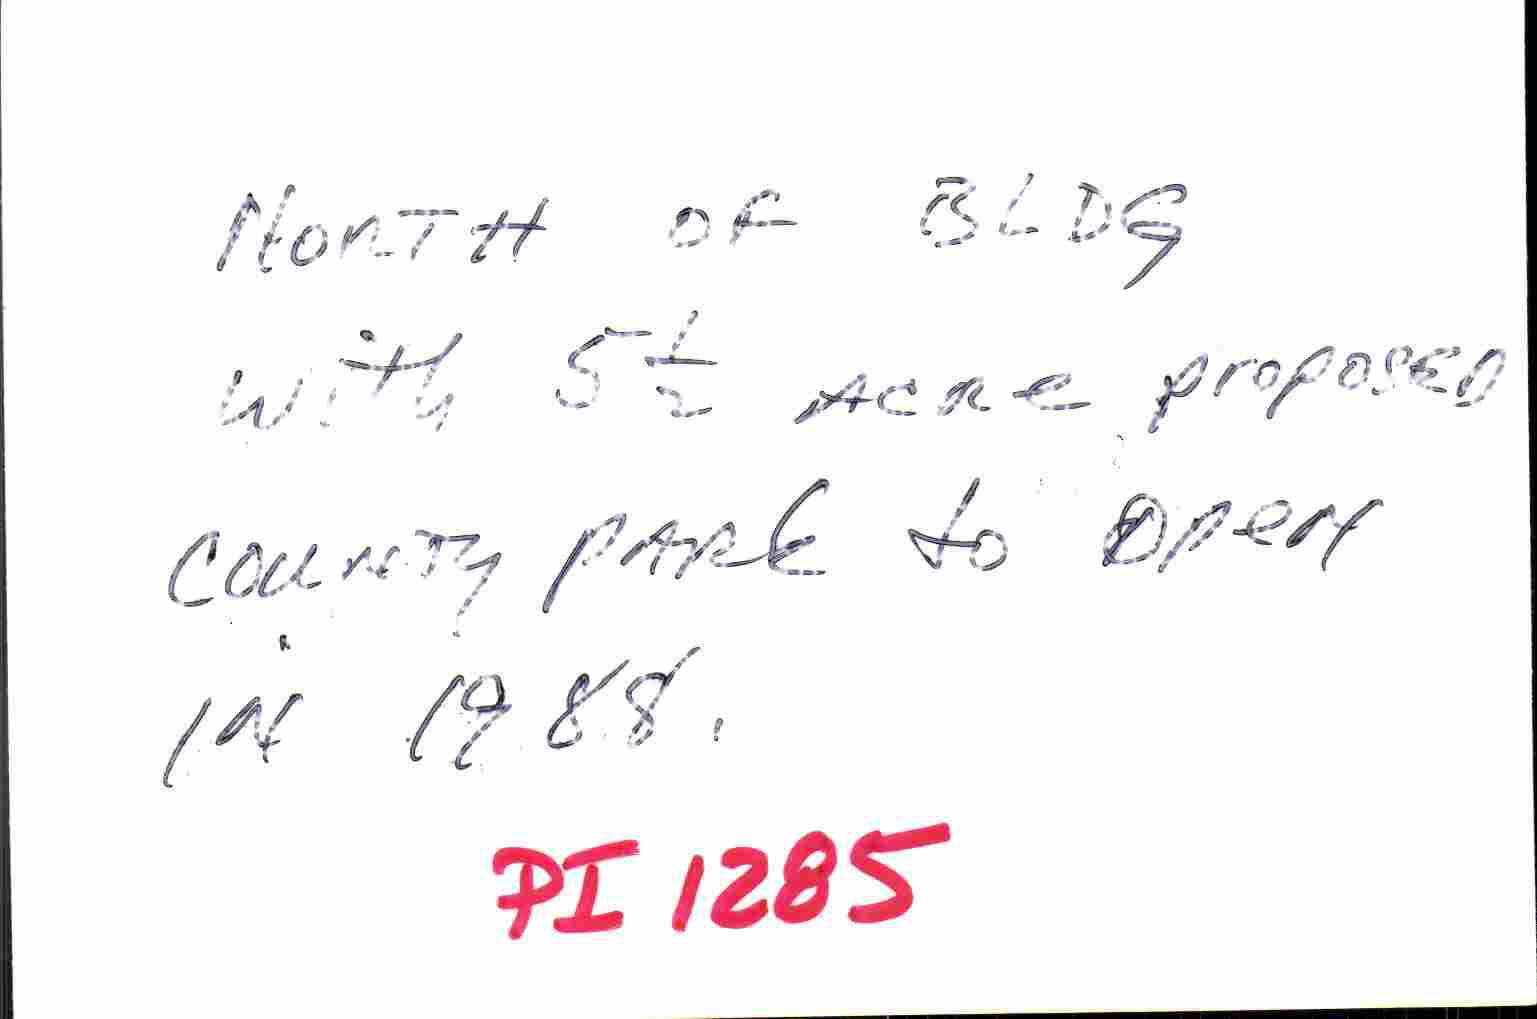 NORTH OF BLDG
with 5 1/2 ACRE proposED
COUNTY PARK to OPEN
IN 1988.
PI 1285